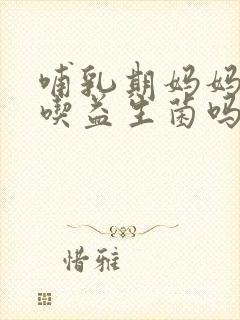 哺乳期妈妈
喫益生菌吗
惜雅